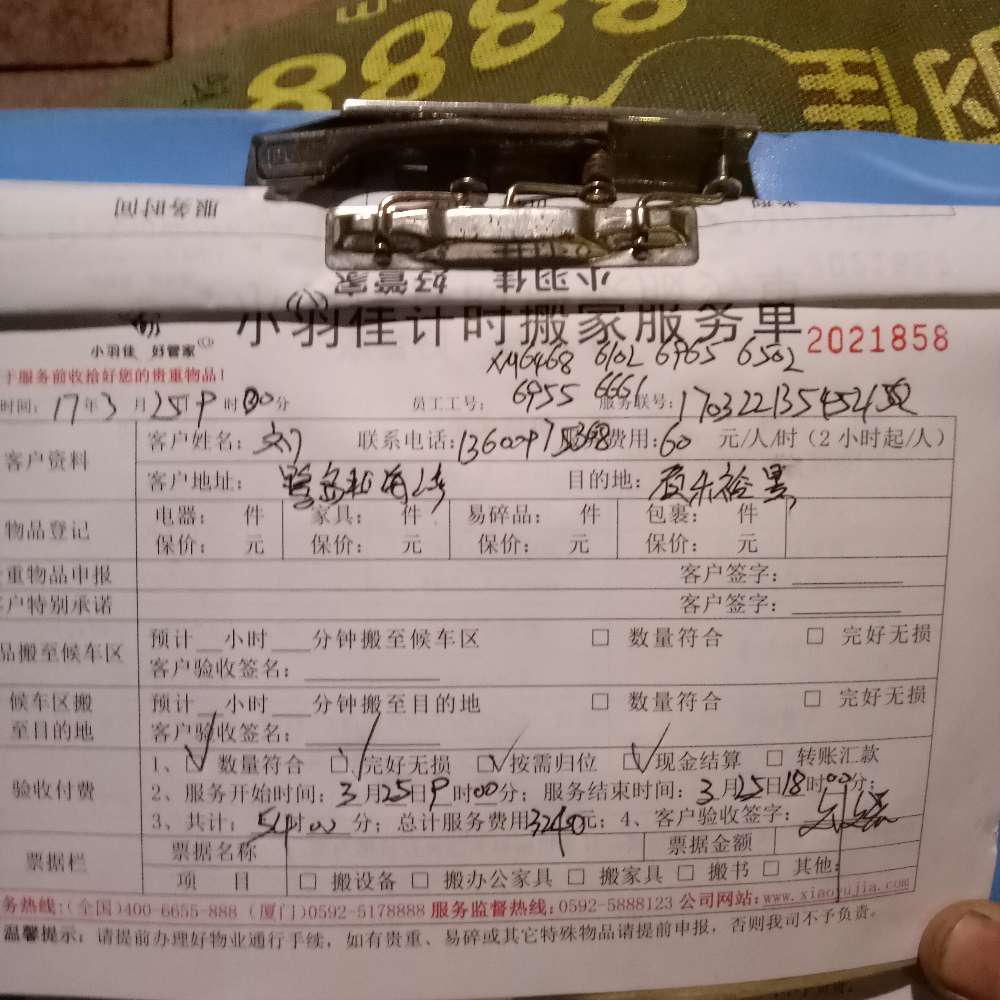 8888
服务时间
小羽佳 好管家
小羽佳计时搬家服务单 2021858
小羽佳 好管家
XM6468 6102 6965 6502
于服务前收拾好您的贵重物品!
6955 6661
时间: 17年3月25日9时00分 员工工号: 服务联号:
客户资料
客户姓名: 联系电话: 费用: 60 元/人/时 (2小时起/人)
客户地址: 目的地:
物品登记
电器: 件 家具: 件 易碎品: 件 包裹: 件
保价: 元 保价: 元 保价: 元 保价: 元
重物品申报 客户签字:
户特别承诺 客户签字:
品搬至候车区
预计__小时___分钟搬至候车区 □ 数量符合 □ 完好无损
客户验收签名:
候车区搬至目的地
预计__小时___分钟搬至目的地 □ 数量符合 □ 完好无损
客户验收签名:
验收付费
1、☑ 数量符合 ☑ 完好无损 ☑ 按需归位 ☑ 现金结算 □ 转账汇款
2、服务开始时间: 3月25日9时00分; 服务结束时间: 3月25日18时00分;
3、共计: 54时00分; 总计服务费用3240元; 4、客户验收签字:
票据栏
票据名称 票据金额
项 目 □ 搬设备 □ 搬办公家具 □ 搬家具 □ 搬书 □ 其他:
务热线:(全国)400-6655-888 (厦门)0592-5178888 服务监督热线:0592-5888123 公司网站:www.xiaoyujia.com
温馨提示: 请提前办理好物业通行手续, 如有贵重、易碎或其它特殊物品请提前申报, 否则我司不予负责。